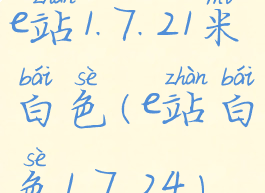 zhàn mǐ
e站1.7.21米
bái sè zhàn bái
白色(e站白
sè
色1.7.24)